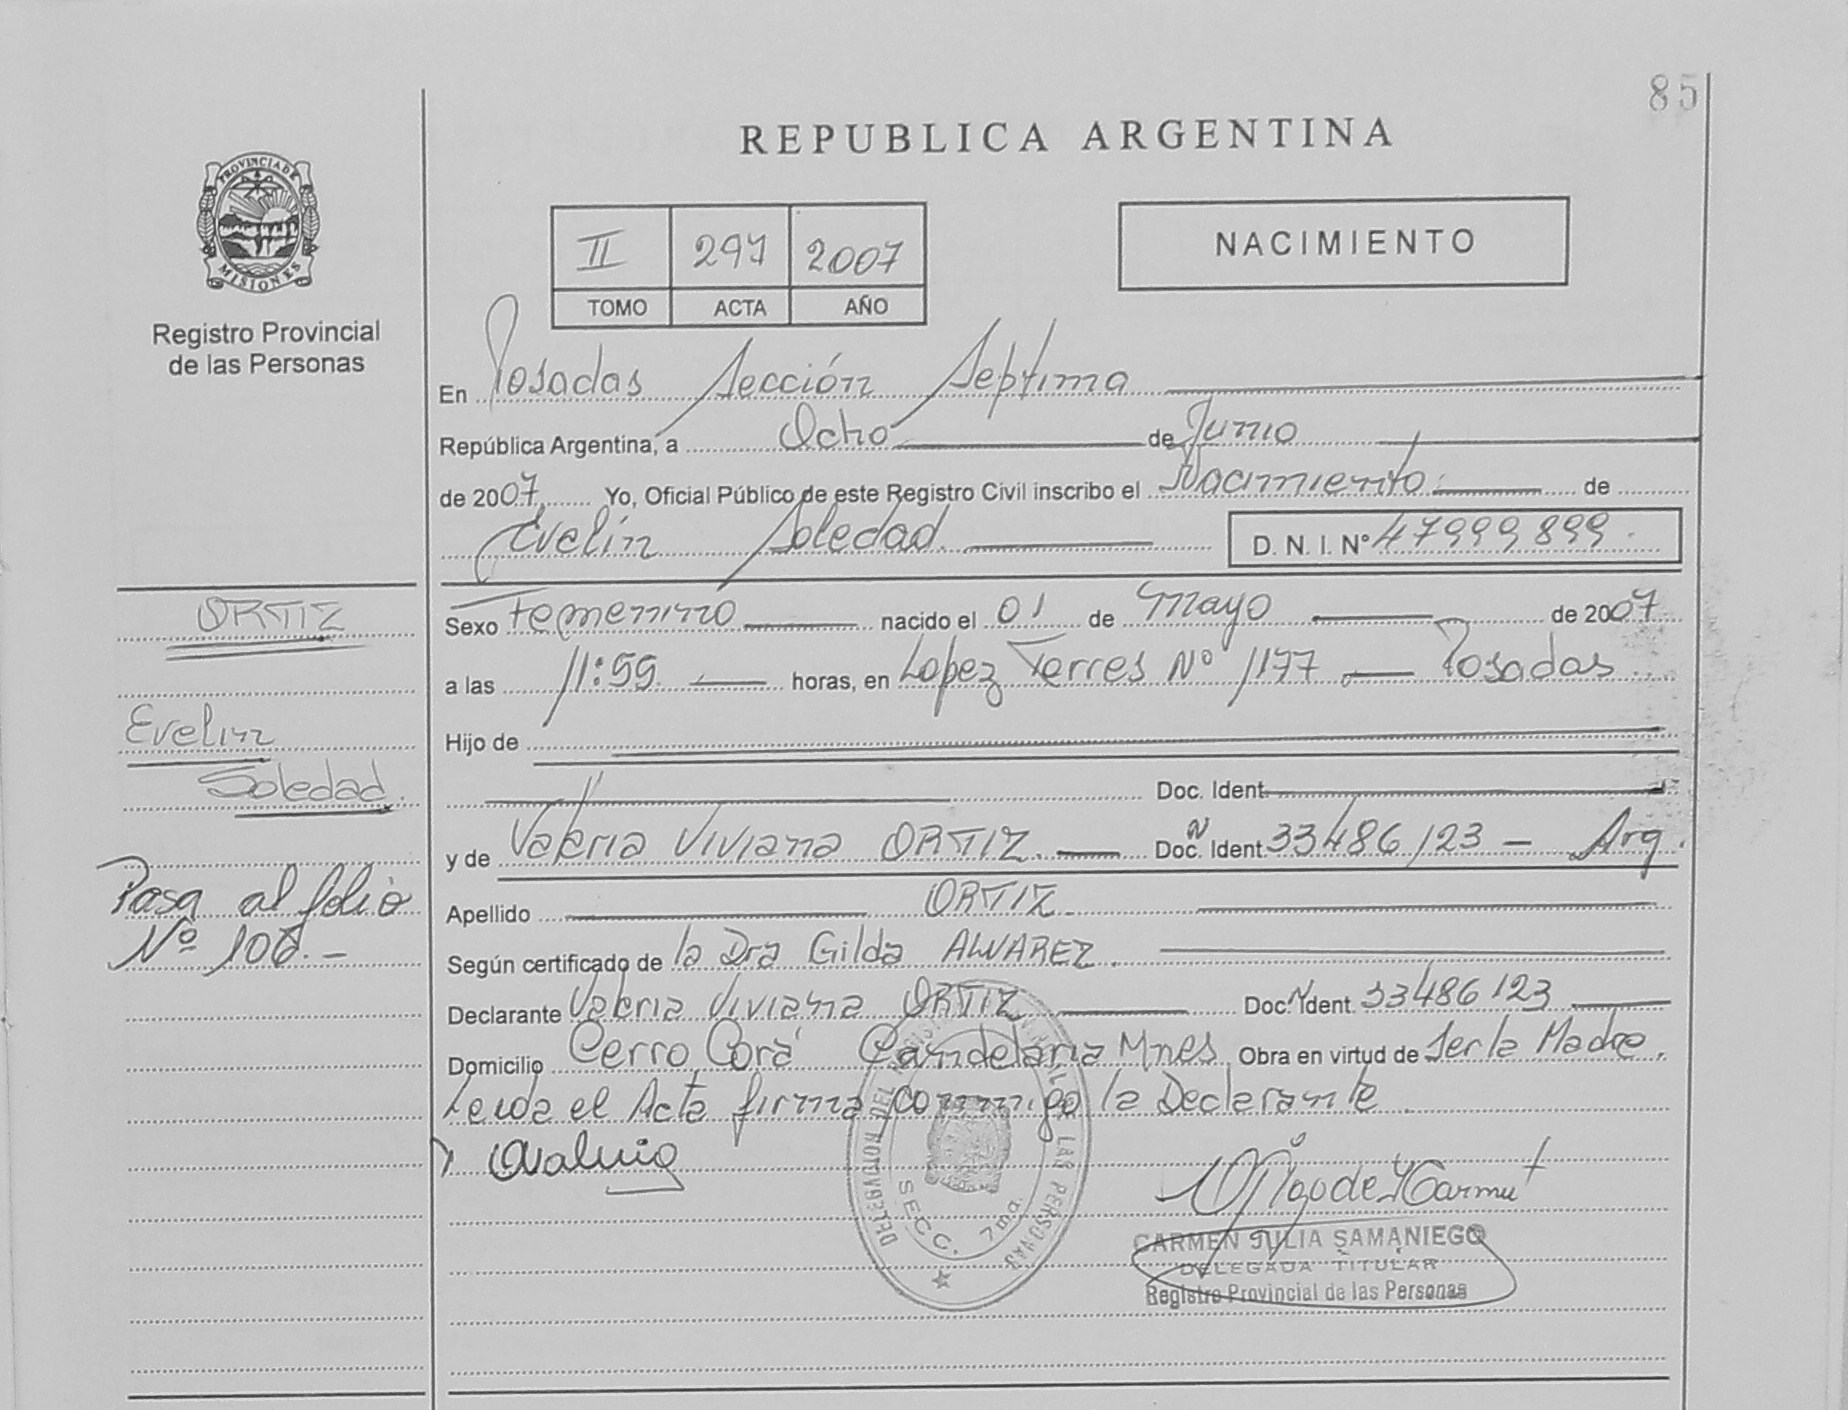 85
REPUBLICA ARGENTINA
PROVINCIA DE
MISIONES
Registro Provincial
de las Personas
II 297 2007
TOMO ACTA AÑO
NACIMIENTO
En Posadas Sección Septima
República Argentina, a Ocho de Junio
de 2007 Yo, Oficial Público de este Registro Civil inscribo el Nacimiento de
Evelin Soledad. D. N. I. Nº 47999899.
ORTIZ
Evelin
Soledad.
Pasa al folio
Nº 106.-
Sexo Femenino nacido el 01 de Mayo de 2007
a las 11:55 horas, en Lopez Torres Nº 1177 Posadas
Hijo de
Doc. Ident.
y de Valeria Viviana ORTIZ. Doc. N Ident. 33486123 - Arg.
Apellido ORTIZ.
Según certificado de la Dra Gilda ALVAREZ.
Declarante Valeria Viviana ORTIZ Doc. N Ident. 33486123
Domicilio Cerro Corá Candelaria Mnes Obra en virtud de Ser la Madre.
Leida el Acta firma conmigo la Declarante
DELEGACION DEL REGISTRO CIVIL DE LAS PERSONAS
SECC. 7ma.
CARMEN JULIA SAMANIEGO
DELEGADA TITULAR
Registro Provincial de las Personas